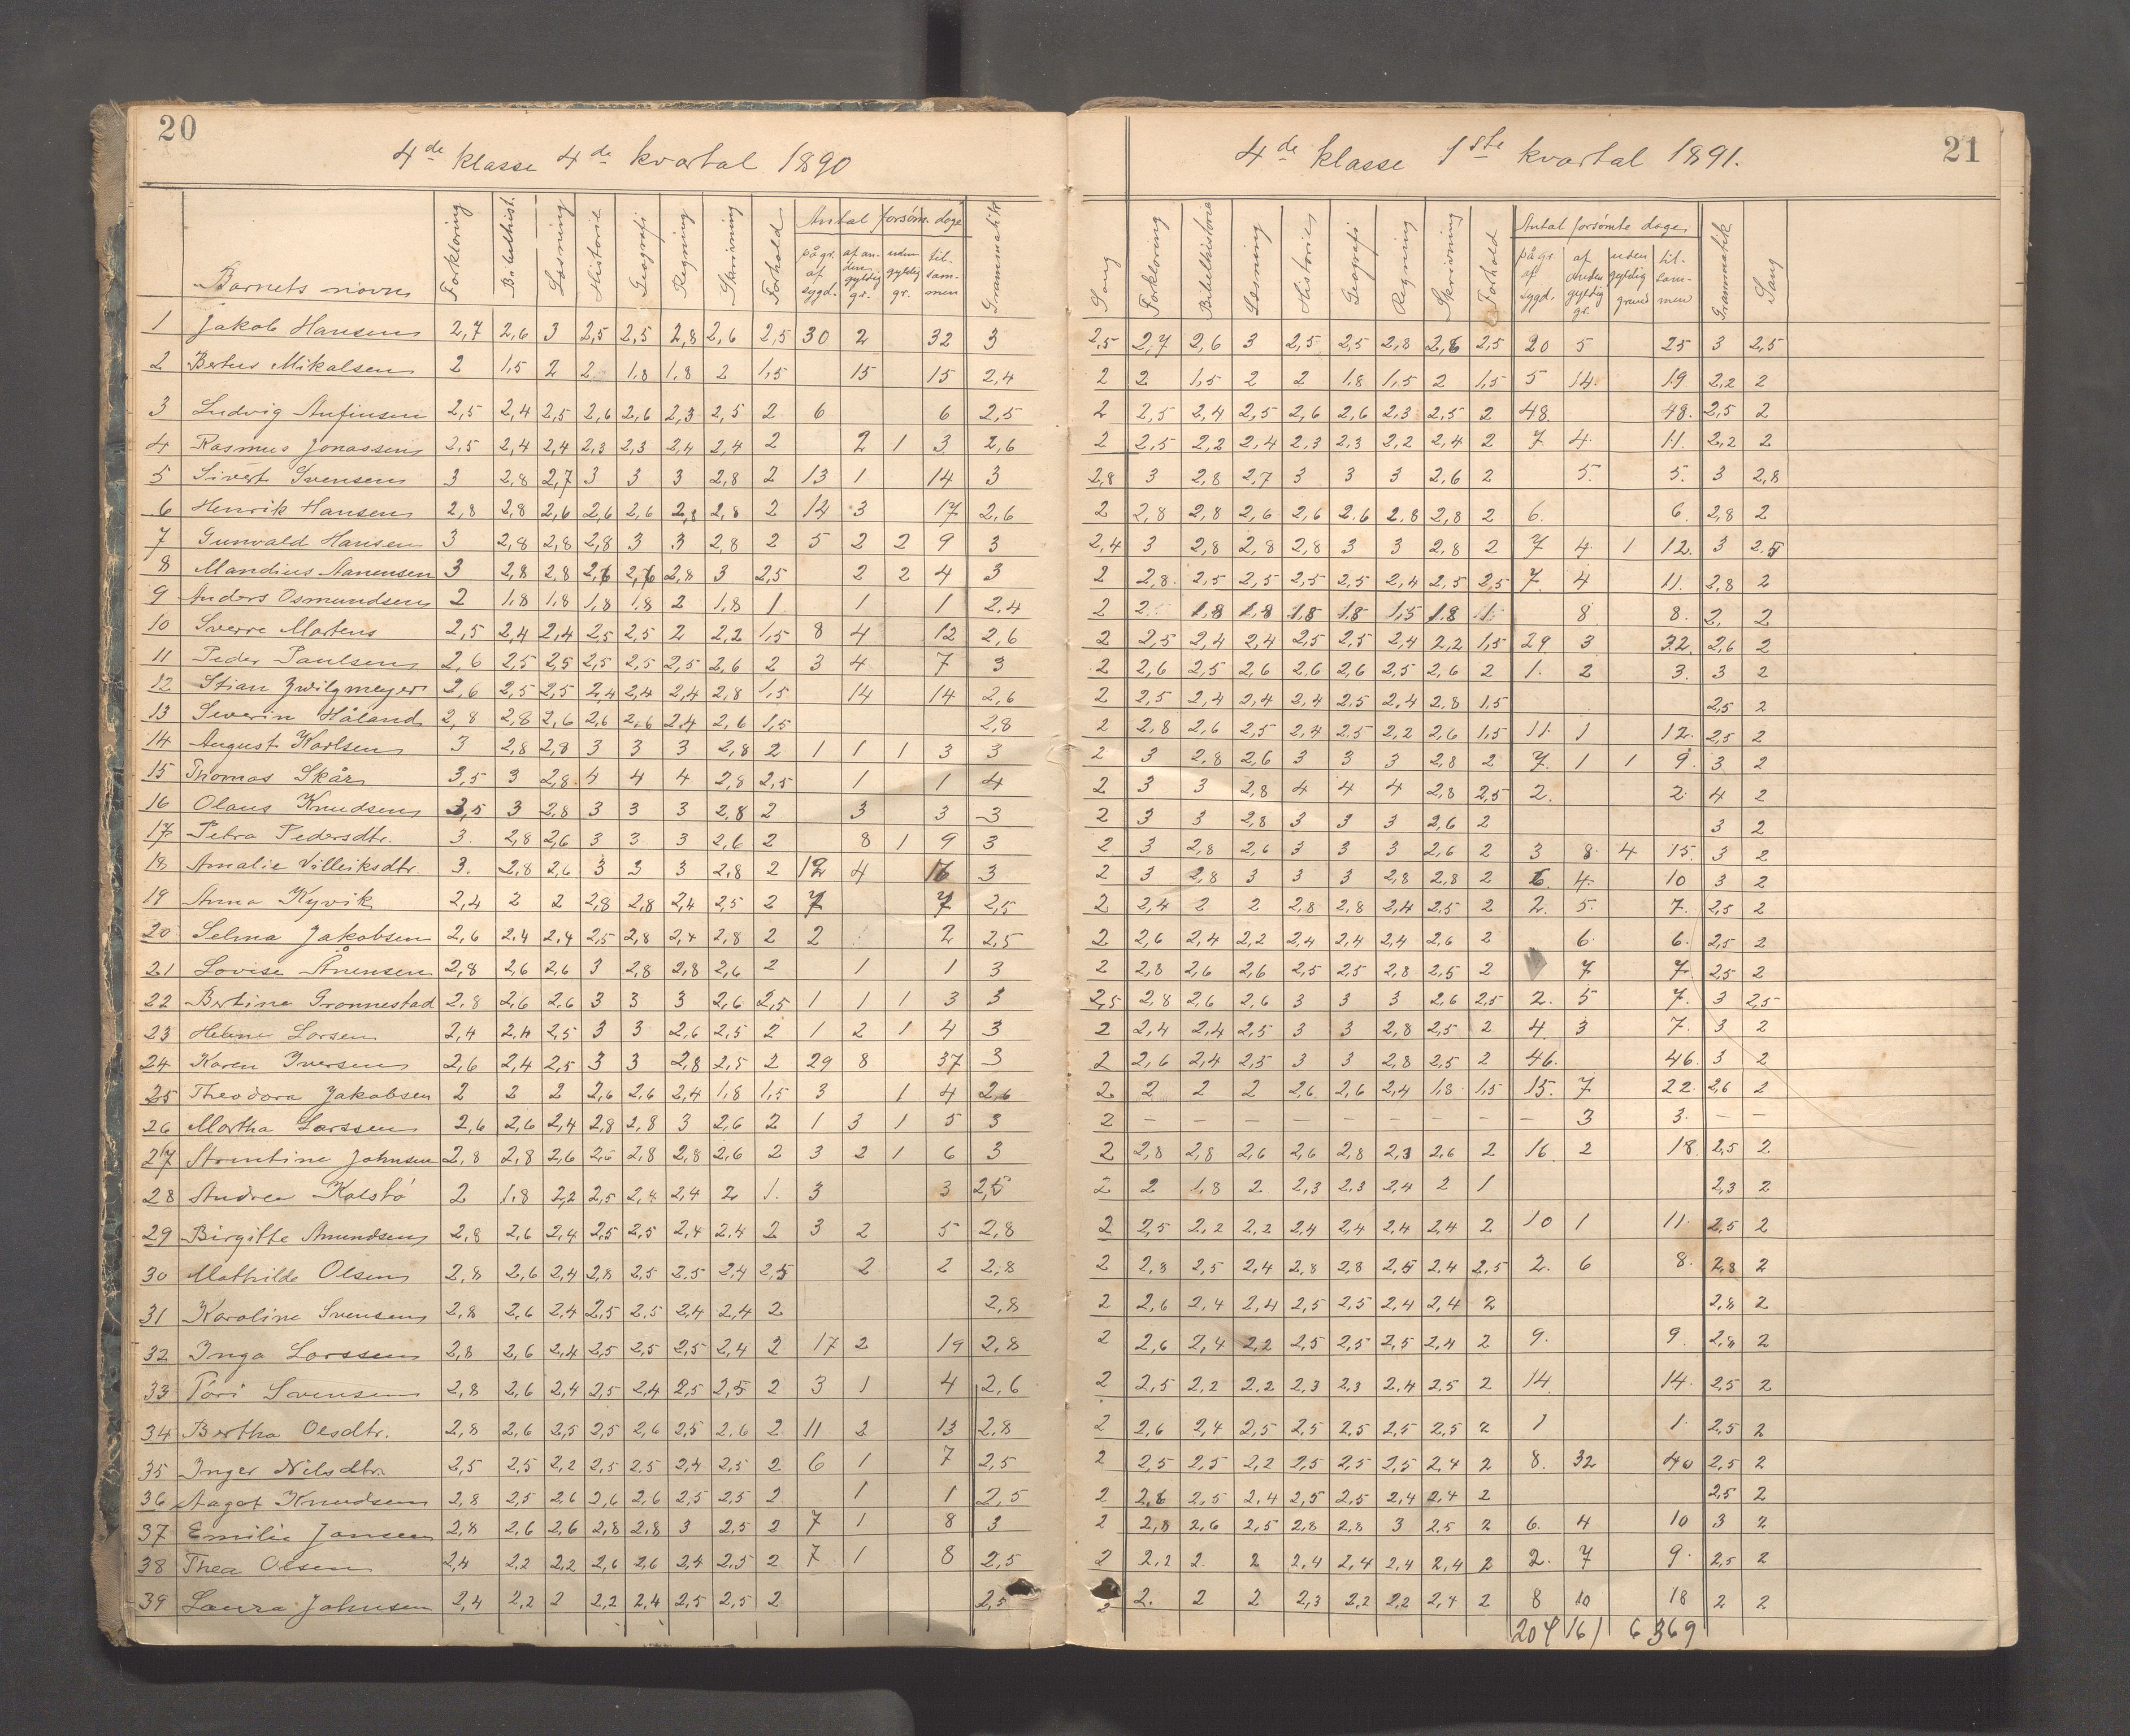 20
4de klasse 4de kvartal 1890
Barnets navn Forklaring Bibelhist. Læsning Historie Geografi Regning Skrivning Forhold Antal forsøm. dage på gr. af sygd. af anden gyldig gr. uden gyldig gr. tilsammen Grammatik
1 Jakob Hansen 2,7 2,6 3 2,5 2,5 2,8 2,6 2,5 30 2 32 3
2 Bertus Mikalsen 2 1,5 2 2 1,8 1,8 2 1,5 15 15 2,4
3 Ludvig Anfinsen 2,5 2,4 2,5 2,6 2,6 2,3 2,5 2 6 6 2,5
4 Rasmus Jonassen 2,5 2,4 2,4 2,3 2,3 2,4 2,4 2 2 1 3 2,6
5 Sivert Svensen 3 2,8 2,7 3 3 3 2,8 2 13 1 14 3
6 Henrik Hansen 2,8 2,8 2,6 2,6 2,6 2,8 2,8 2 14 3 17 2,6
7 Gunvald Hansen 3 2,8 2,8 2,8 3 3 2,8 2 5 2 2 9 3
8 Mandius Aanensen 3 2,8 2,8 2,6 2,6 2,8 3 2,5 2 2 4 3
9 Anders Osmundsen 2 1,8 1,8 1,8 1,8 2 1,8 1 1 1 2,4
10 Sverre Martens 2,5 2,4 2,4 2,5 2,5 2 2,2 1,5 8 4 12 2,6
11 Peder Paulsen 2,6 2,5 2,5 2,5 2,5 2,5 2,6 2 3 4 7 3
12 Stian Zwilgmeyer 2,6 2,5 2,5 2,4 2,4 2,4 2,8 1,5 14 14 2,6
13 Severin Håland 2,8 2,8 2,6 2,6 2,6 2,4 2,6 1,5 2,8
14 August Karlsen 3 2,8 2,8 3 3 3 2,8 2 1 1 1 3 3
15 Thomas Skår 3,5 3 2,8 4 4 4 2,8 2,5 1 1 4
16 Olaus Knudsen 3,5 3 2,8 3 3 3 2,8 2 3 3 3
17 Petra Pedersdtr. 3 2,8 2,6 3 3 3 2,6 2 8 1 9 3
18 Amalie Villeiksdtr. 3. 2,8 2,6 3 3 3 2,8 2 12 4 16 3
19 Anna Kyvik 2,4 2 2 2,8 2,8 2,4 2,5 2 7 7 2,5
20 Selma Jakobsen 2,6 2,4 2,4 2,5 2,8 2,4 2,8 2 2 2 2,5
21 Lovise Ånensen 2,8 2,6 2,6 3 2,8 2,8 2,6 2 1 1 3
22 Bertine Grønnestad 2,8 2,6 2,6 3 3 3 2,6 2,5 1 1 1 3 3
23 Helene Larsen 2,4 2,4 2,5 3 3 2,6 2,5 2 1 2 1 4 3
24 Karen Iversen 2,6 2,4 2,5 3 3 2,8 2,5 2 29 8 37 3
25 Theodora Jakobsen 2 2 2 2,6 2,6 2,4 1,8 1,5 3 1 4 2,6
26 Martha Larssen 2,6 2,6 2,4 2,8 2,8 3 2,6 2 1 3 1 5 3
27 Johnsen 2,8 2,8 2,6 2,6 2,8 2,8 2,6 2 3 2 1 6 3
28 Andrea Kolstø 2 1,8 2,2 2,5 2,4 2,4 2 1. 3 3 2,5
29 Birgitte Amundsen 2,8 2,6 2,4 2,5 2,5 2,4 2,4 2 3 2 5 2,8
30 Mathilde Olsen 2,8 2,6 2,4 2,8 2,5 2,5 2,4 2,5 2 2 2,8
31 Karoline Svensen 2,8 2,6 2,4 2,5 2,5 2,4 2,4 2 2,8
32 Inga Larssen 2,8 2,6 2,4 2,5 2,5 2,5 2,4 2 17 2 19 2,8
33 Tori Svensen 2,8 2,6 2,4 2,5 2,4 2,5 2,5 2 3 1 4 2,6
34 Bertha Olsdtr. 2,8 2,6 2,5 2,5 2,6 2,5 2,6 2 11 2 13 2,8
35 Inger Nilsdtr. 2,5 2,5 2,2 2,5 2,5 2,4 2,5 2 6 1 7 2,5
36 Aagot Knudsen 2,8 2,5 2,6 2,6 2,6 2,5 2,5 2 1 1 2,5
37 Emilie Jansen 2,8 2,6 2,6 2,8 2,8 3 2,5 2 7 1 8 3
38 Thea Olsen 2,4 2,2 2,2 2,6 2,6 2,4 2,5 2 7 1 8 2,5
39 Laura Johnsen 2,4 2,2 2 2,2 2,4 2,5 2,5 2 2,5
21
4de klasse 1ste kvartal 1891.
Sang Forklaring Bibelhistorie Læsning Historie Geografi Regning Skrivning Forhold Antal forsømte dage på gr. af sygd. af anden gyldig gr. uden gyldig grund tilsammen Grammatik Sang
2,5 2,7 2,6 3 2,5 2,5 2,8 2,6 2,5 20 5 25 3 2,5
2 2 1,5 2 2 1,8 1,5 2 1,5 5 14. 19 2,2 2
2 2,5 2,4 2,5 2,6 2,6 2,3 2,5 2 48. 48. 2,5 2
2 2,5 2,2 2,4 2,3 2,3 2,2 2,4 2 7. 4. 11. 2,2 2
2,8 3 2,8 2,7 3 3 3 2,6 2 5. 5. 3 2,8
2 2,8 2,8 2,6 2,6 2,6 2,8 2,8 2 6. 6. 2,8 2
2,4 3 2,8 2,8 2,8 3 3 2,8 2 7 4. 1 12. 3 2,5
2 2,8. 2,5 2,5 2,5 2,5 2,4 2,5 2,5 7. 4 11. 2,8 2
2 2 1,8 1,8 1,8 1,8 1,5 1,8 1 8. 8. 2, 2
2 2,5 2,4 2,4 2,5 2,5 2,4 2,2 1,5 29 3 32. 2,6 2
2 2,6 2,5 2,6 2,6 2,6 2,5 2,6 2 1. 2 3. 3 2
2 2,5 2,4 2,4 2,4 2,5 2,4 2,8 1,5 2,5 2
2 2,8 2,6 2,5 2,4 2,5 2,2 2,6 1,5 11. 1 12. 2,5 2
2 3 2,8 2,6 3 3 3 2,8 2 7. 1 1 9. 3 2
2 3 3 2,8 4 4 4 2,8 2,5 2. 2. 4 2
2 3 3 2,8 3 3 3 2,6 2 3 2
2 3 2,8 2,6 3 3 3 2,6 2 3 8. 4 15. 3 2
2 3 2,8 3 3 3 2,8 2,8 2 6. 4. 10 3 2
2 2,4 2 2 2,8 2,8 2,4 2,5 2 2. 5. 7. 2,5 2
2 2,6 2,4 2,2 2,4 2,4 2,4 2,6 2 6. 6. 2,5 2
2 2,8 2,6 2,6 2,5 2,5 2,8 2,5 2 7 7. 2,5 2
2,5 2,8 2,6 2,6 3 3 3 2,6 2,5 2. 5 7. 3 2,5
2 2,4 2,4 2,5 3 3 2,8 2,5 2 4 3 7. 3 2
2 2,6 2,4 2,5 3 3 2,8 2,5 2 46. 46. 3 2
2. 2 2 2 2,6 2,6 2,4 1,8 1,5 15. 7 22. 2,6 2
2 – – – – – – – – 3 3. – –
2 2,8 2,8 2,6 2,6 2,8 2,3 2,6 2 16. 2 18. 2,5 2
2 2 1,8 2 2,3 2,3 2,4 2 1 2,3 2
2 2,5 2,2 2,2 2,4 2,4 2,4 2,4 2 10 1 11. 2,5 2
2 2,8 2,5 2,4 2,8 2,8 2,5 2,4 2,5 2. 6 8. 2,8 2
2 2,6 2,4 2,4 2,5 2,5 2,4 2,4 2 2,8 2
2 2,6 2,4 2,2 2,5 2,5 2,5 2,4 2 9. 9. 2,8 2
2 2,5 2,2 2,2 2,3 2,3 2,4 2,5 2 14. 14. 2,5 2
2 2,6 2,4 2,5 2,5 2,5 2,5 2,5 2 1 1. 2,5 2
2 2,5 2,5 2,2 2,5 2,5 2,5 2,4 2 8. 32 40 2,5 2
2 2,6 2,5 2,4 2,5 2,5 2,4 2,4 2 2,5 2
2 2,8 2,6 2,5 2,8 2,8 3 2,5 2 6. 4 10 3 2
2 2,2 2 2 2,4 2,4 2,4 2,4 2 2. 7 9. 2,5 2
2 2. 2 2 2,3 2,2 2,2 2,4 2 8 10 18 2 2
161 6 369